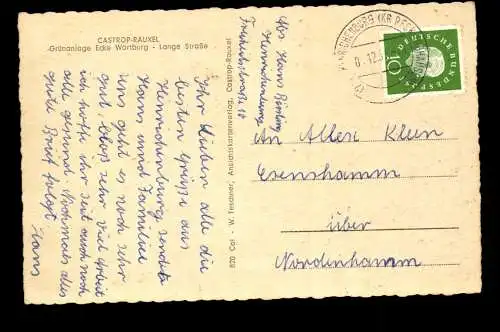 CASTROP-RAUXEL
Grünanlage Ecke Wartburg - Lange Straße
Ihr Lieben alle die
besten Grüße aus
Henrichenburg sendet
Hans und Familie
uns geht es noch sehr
gut, sehr viel Arbeit
ich hoffe ihr seit auch noch
alle gesund, Nochmals alles
gute Brief folgt
Hans
820 Col · W. Feschner, Ansichtskartenverlag, Castrop-Rauxel
Abs Hans
Henrichenburg
Freiheitsstraße 18
HENRICHENBURG (KR RECKL
12
DEUTSCHE BUNDESPOST
10
An Allesi Klein
Esenshamm
über
Nordenhamm